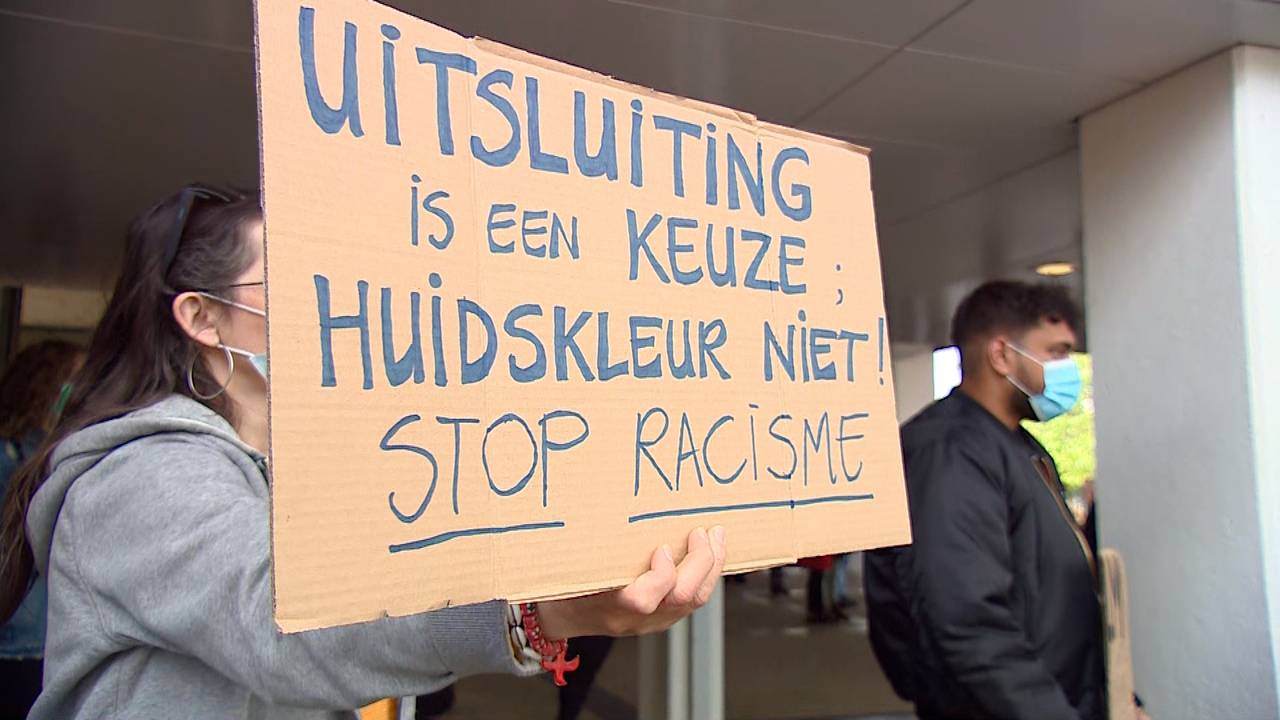 UITSLUITING
IS EEN KEUZE ;
HUIDSKLEUR NIET!
STOP RACISME